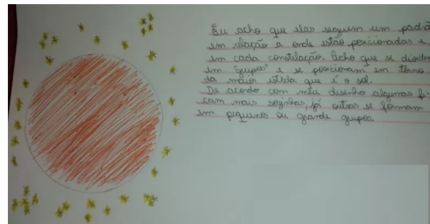 Eu acho que elas seguem um padrão
em relação a onde estão posicionadas e
em cada constelação. Acho que se dividem
em "grupos" e se posicionam em torno
da maior estrela que é o sol.
De acordo com meu desenho algumas fi-
cam mais sozinhas, já outras se formam
em pequenos ou grande grupos.